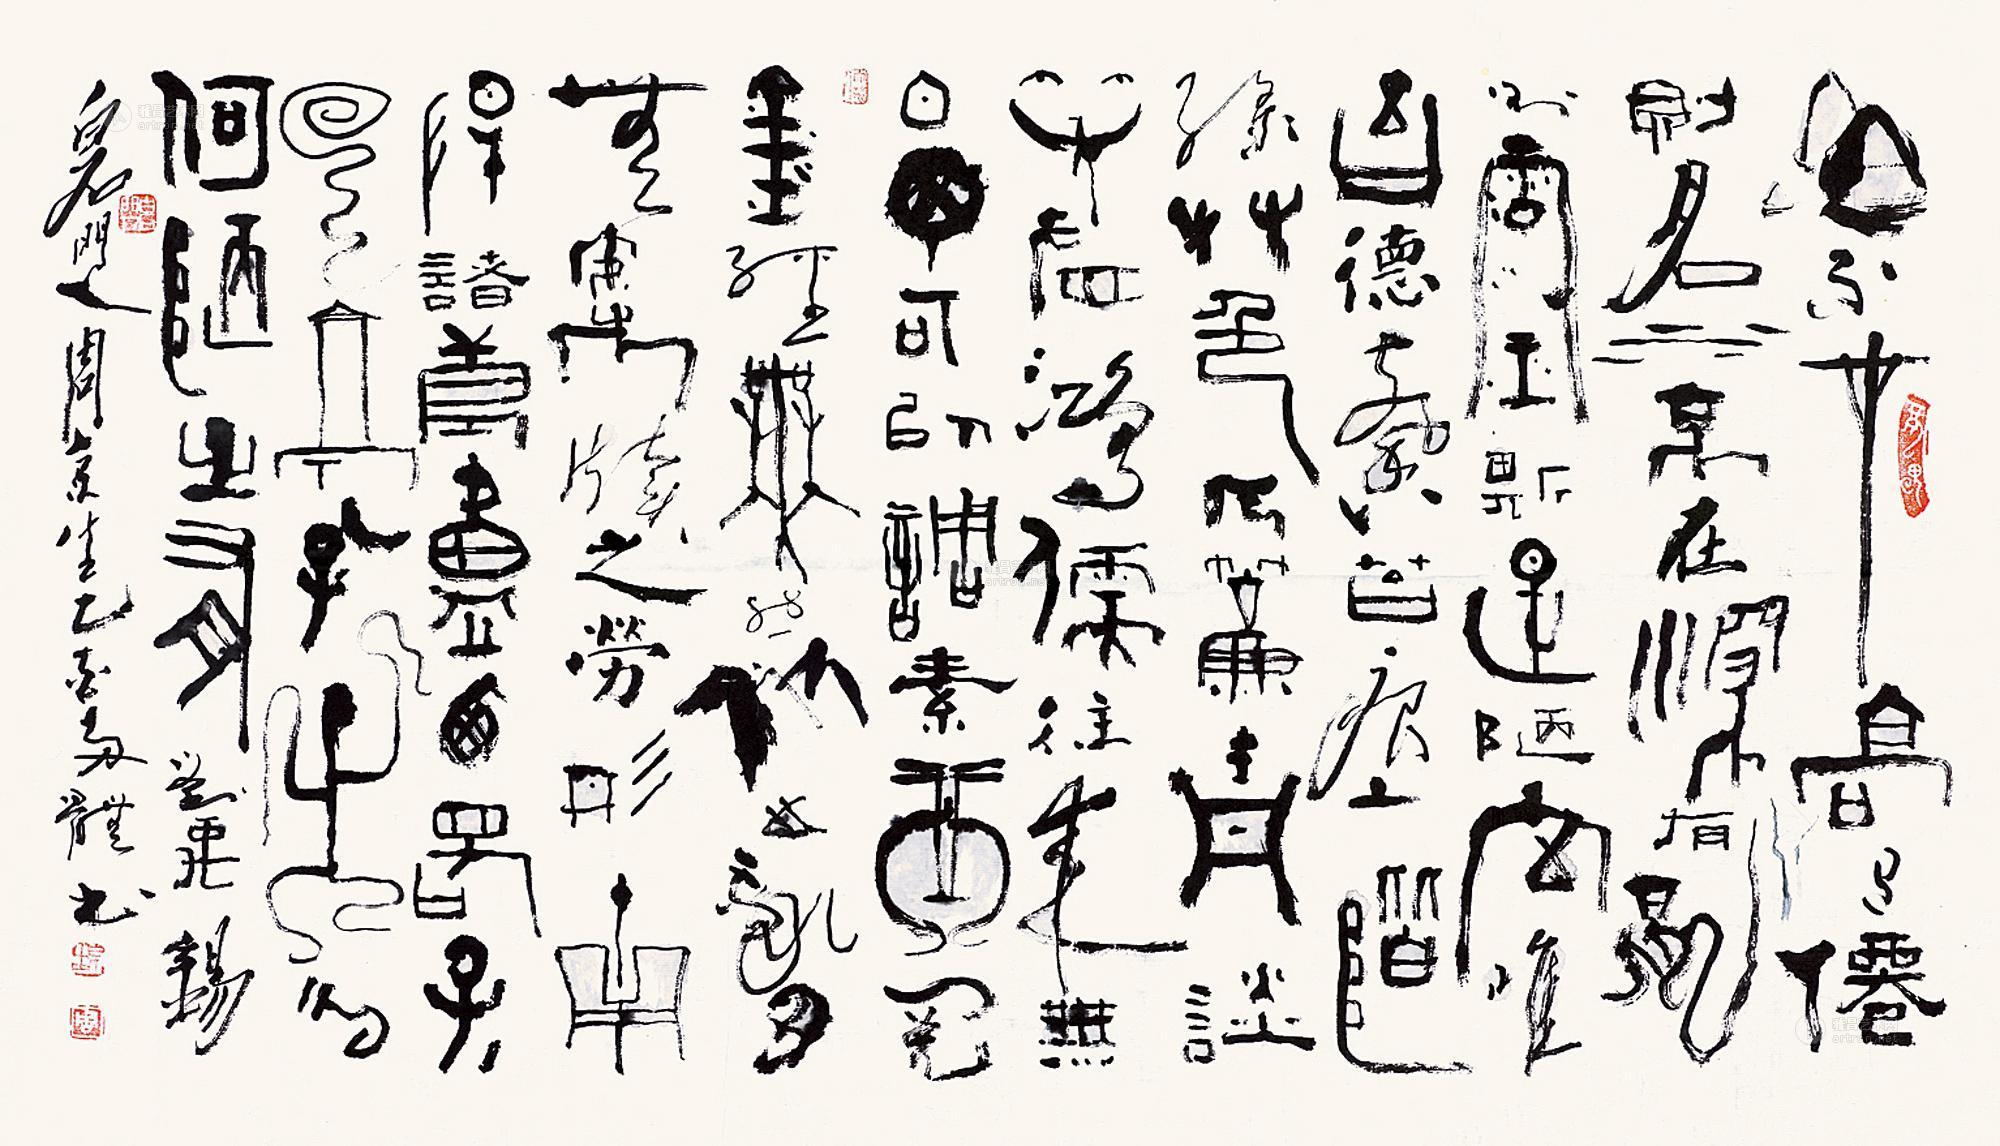 山不在高有僊
則名水不在深有龍
則靈斯是陋室惟
吾德馨苔痕上階
綠艸色入簾青談
笑有鴻儒往來無
白丁可以調素琴閱
金經無絲竹之亂耳
無案牘之勞形南
陽諸葛廬西蜀子
雲亭孔子云
何陋之有劉禹錫
門人周京生乙酉多體書